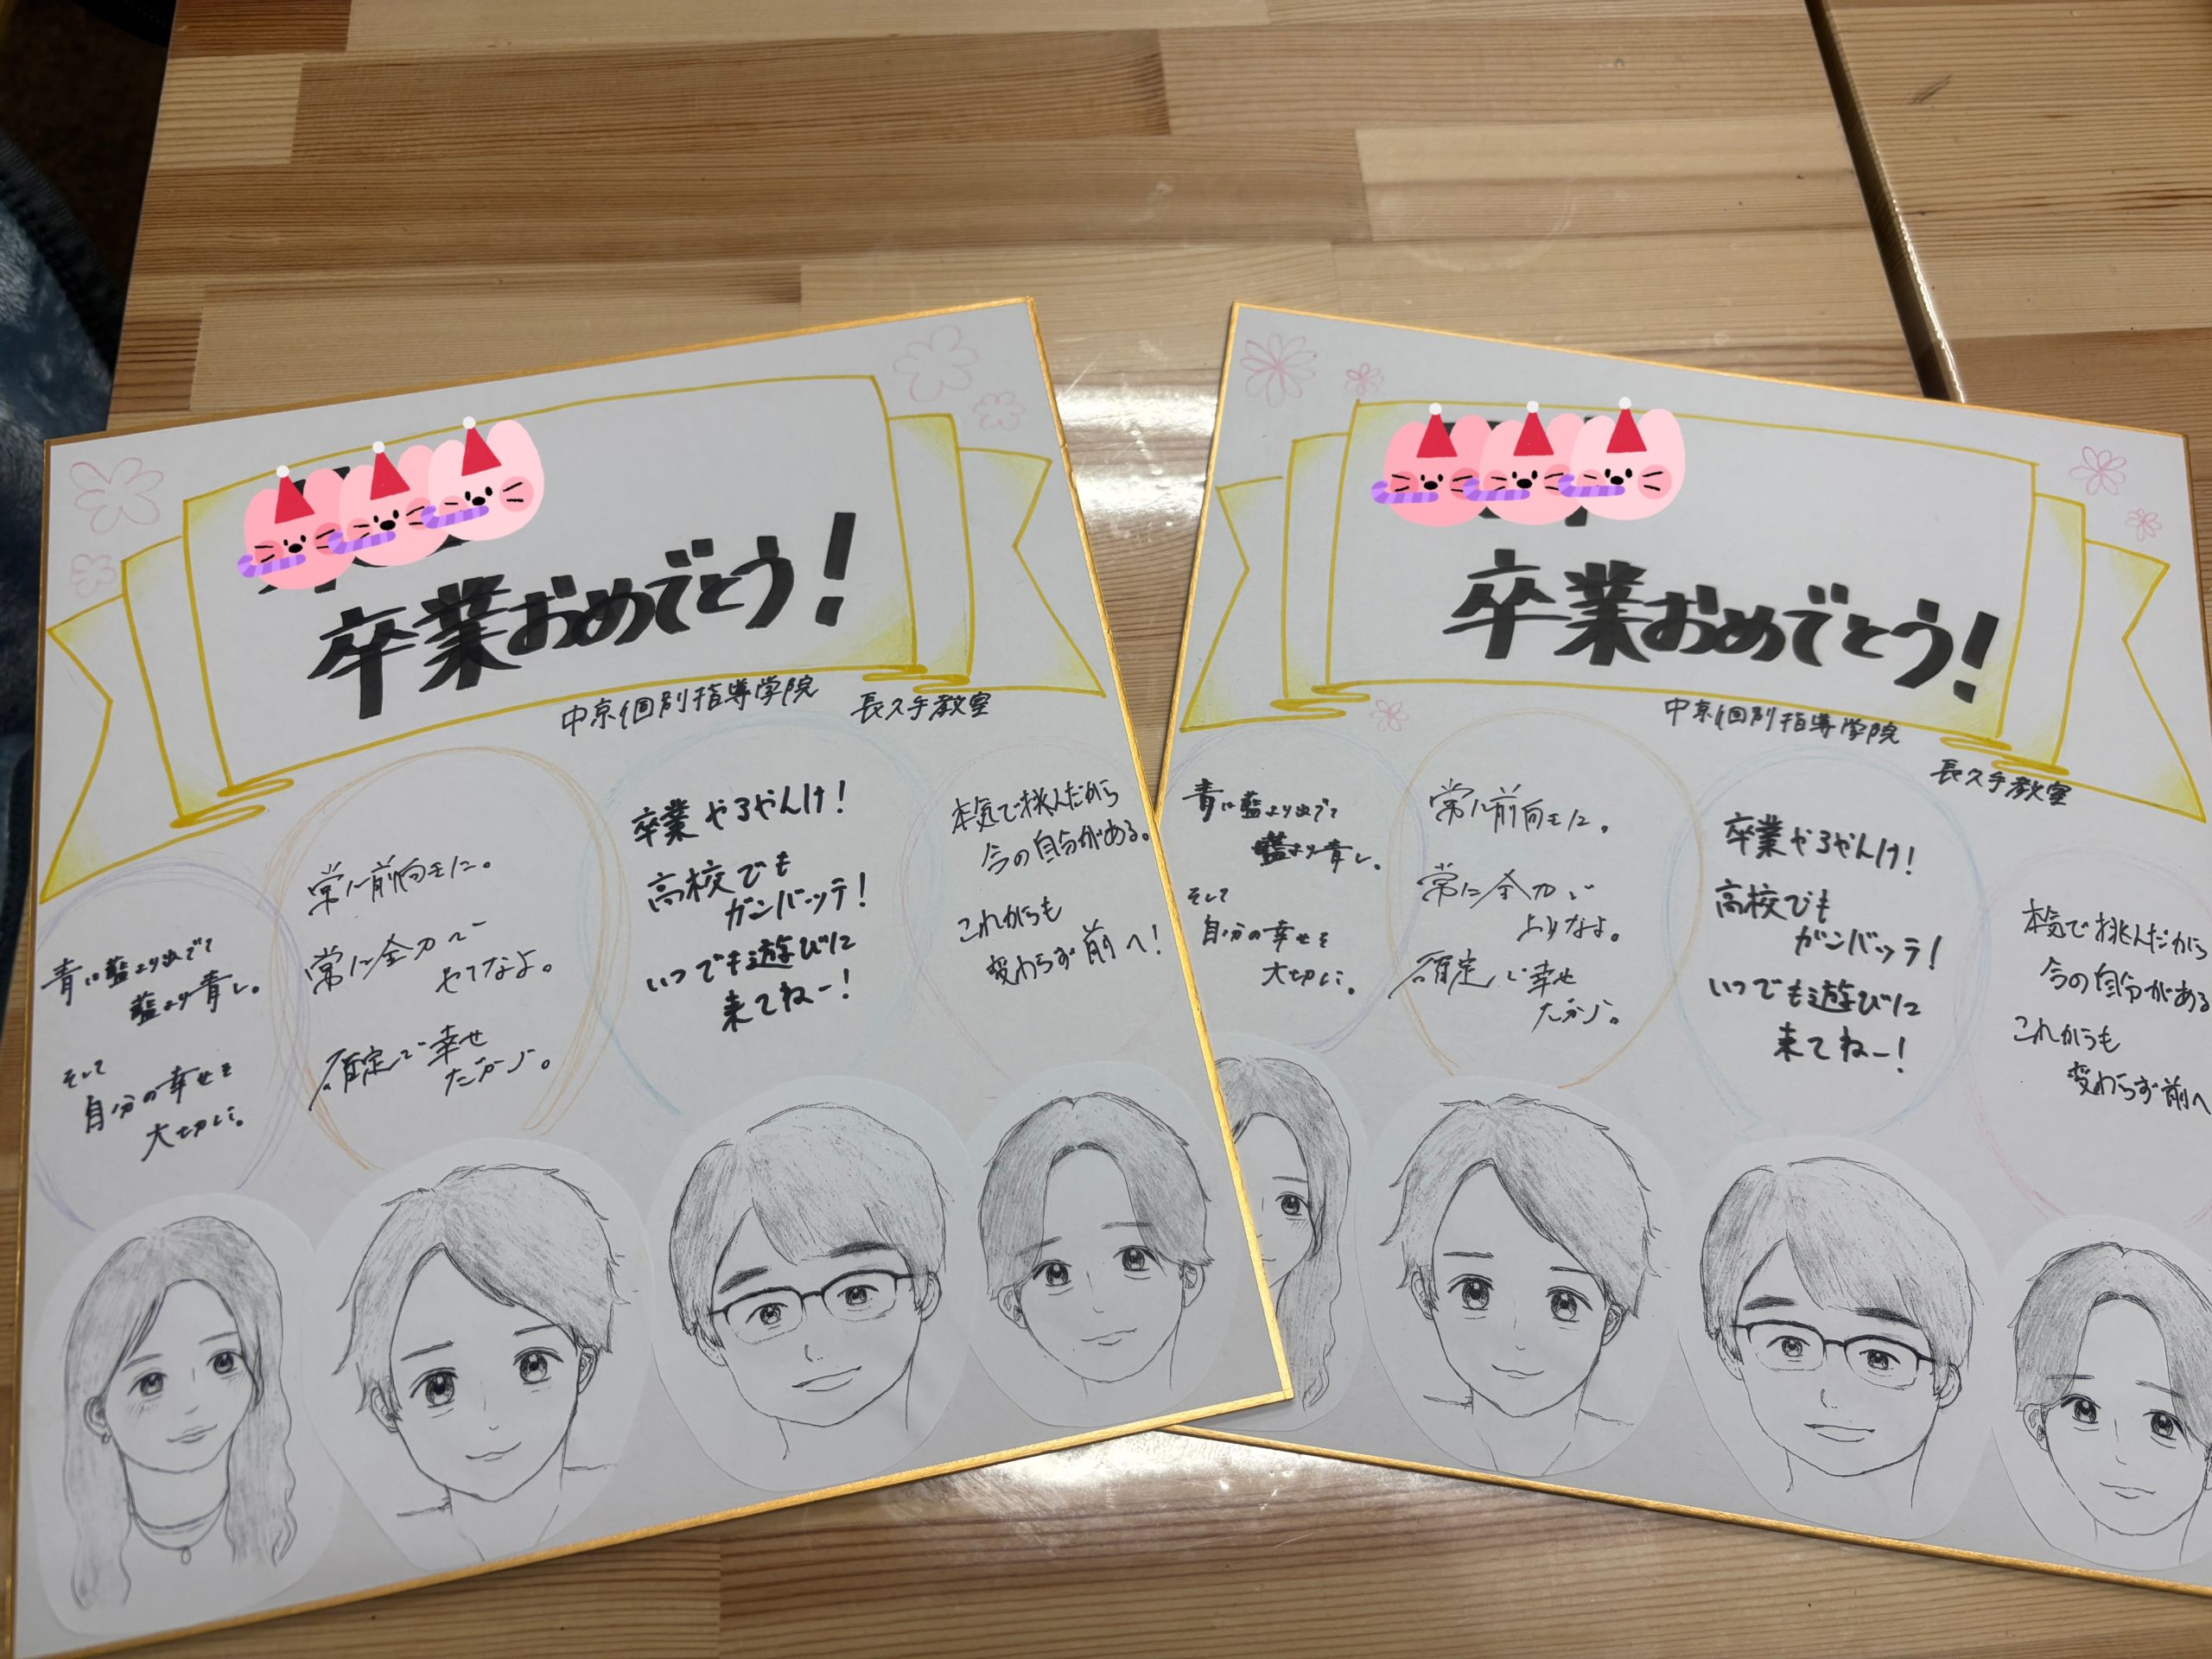 卒業おめでとう!
中京個別指導学院 長久手教室
青は藍より出でて
藍より青し。
そして
自分の幸せを
大切に。
常に前向きに。
常に全力で
やりなよ。
確定で幸せ
だから。
卒業やるやんけ!
高校でも
ガンバッテ!
いつでも遊びに
来てねー!
本気で挑んだから
今の自分がある。
これからも
変わらず前へ!
卒業おめでとう!
中京個別指導学院
長久手教室
青は藍より出でて
藍より青し。
そして
自分の幸せを
大切に。
常に前向きに。
常に全力で
やりなよ。
確定で幸せ
だから。
卒業やるやんけ!
高校でも
ガンバッテ!
いつでも遊びに
来てねー!
本気で挑んだから
今の自分がある
これからも
変わらず前へ